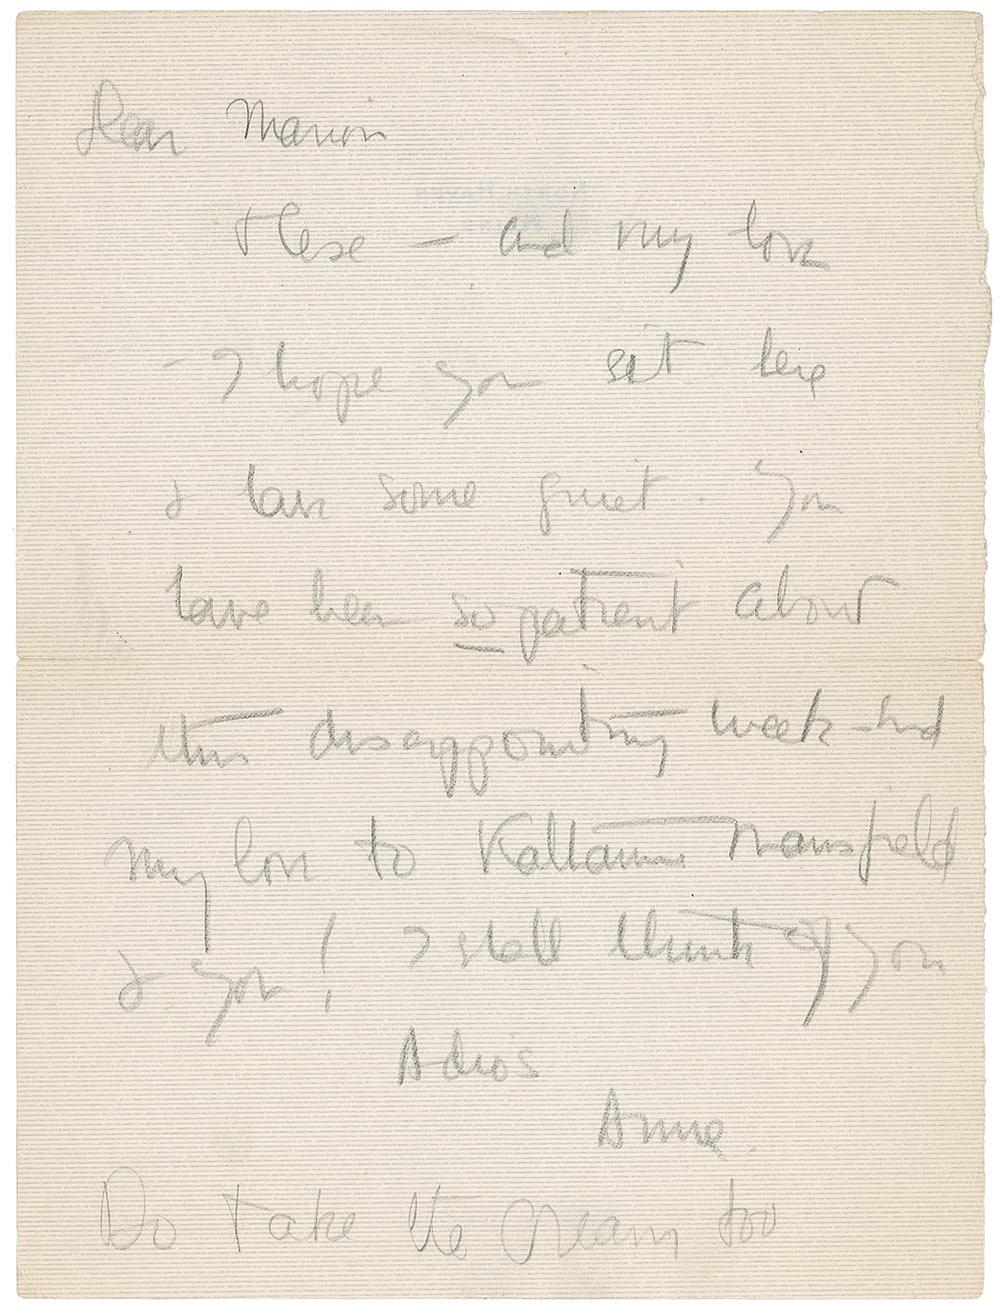 Dear Marion
these – and my love
– I hope you sit here
& have some quiet. You
have been so patient about
this disappointing week-end
My love to Katharine Mansfield
& you! I shall think of you
Adios
Anne.
Do take the cream too